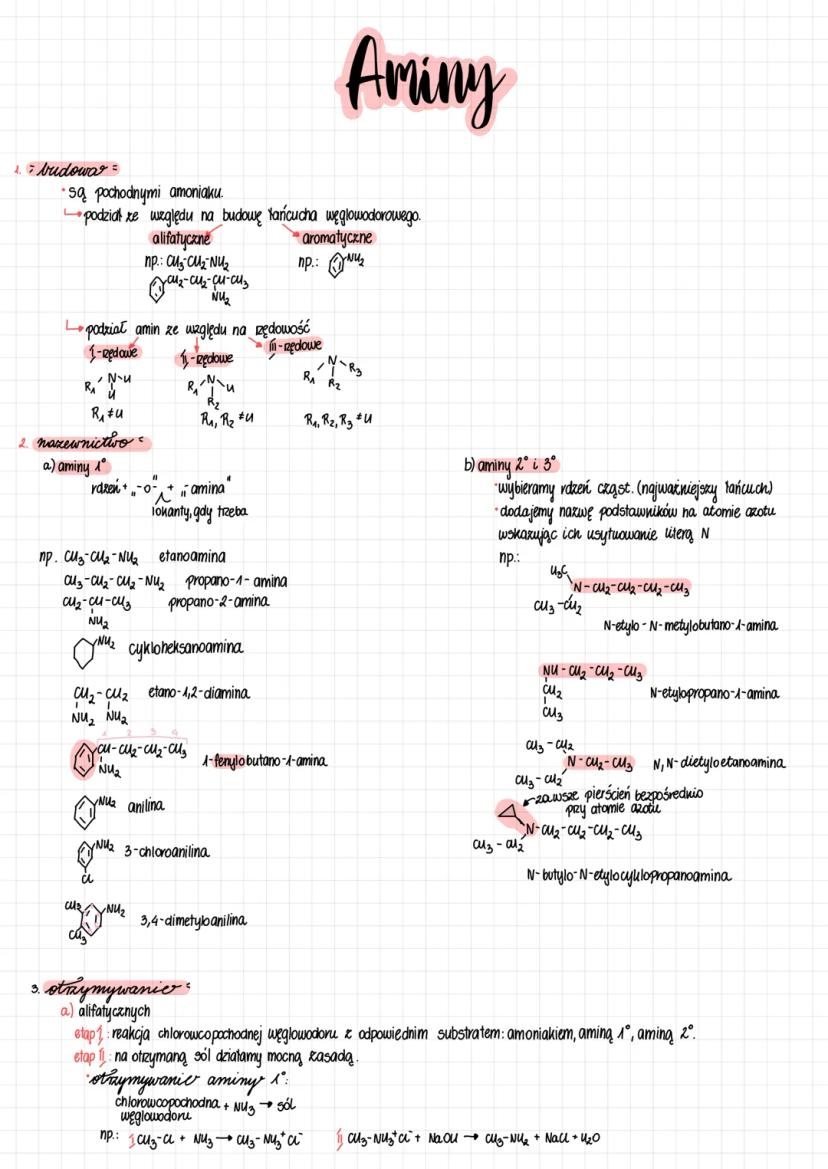 Aminy
1. budowa
• są pochodnymi amoniaku.
↳ podział ze względu na budowę łańcucha węglowodorowego.
alifatyczne aromatyczne
np.: CH₃-CH₂-NH₂ np.: NH₂
CH₂-CH₂-CH-CH₃
NH₂
↳ podział amin ze względu na rzędowość
I-rzędowe II-rzędowe III-rzędowe
R₁ N H R₁ N H R₁ N R₃
H R₂ R₂
R₁ ≠ H R₁, R₂ ≠ H R₁, R₂, R₃ ≠ H
2. nazewnictwo
a) aminy 1°
rdzeń + „-o-" + „amina"
lokanty, gdy trzeba
np. CH₃-CH₂-NH₂ etanoamina
CH₃-CH₂-CH₂-NH₂ propano-1-amina
CH₂-CH-CH₃ propano-2-amina
NH₂
NH₂ cykloheksanoamina
CH₂-CH₂ etano-1,2-diamina
NH₂ NH₂
1 2 3 4
CH-CH₂-CH₂-CH₃ 1-fenylobutano-1-amina
NH₂
NH₂ anilina
NH₂ 3-chloroanilina
Cl
CH₃ NH₂ 3,4-dimetyloanilina
CH₃
b) aminy 2° i 3°
• wybieramy rdzeń cząst. (najważniejszy łańcuch)
• dodajemy nazwę podstawników na atomie azotu
wskazując ich usytuowanie literą N
np.:
H₃C
N-CH₂-CH₂-CH₂-CH₃
CH₃-CH₂
N-etylo-N-metylobutano-1-amina
NH-CH₂-CH₂-CH₃
CH₂ N-etylopropano-1-amina
CH₃
CH₃-CH₂
N-CH₂-CH₃ N,N-dietyloetanoamina
CH₃-CH₂
zawsze pierścień bezpośrednio
przy atomie azotu
N-CH₂-CH₂-CH₂-CH₃
CH₃-CH₂
N-butylo-N-etylocyklopropanoamina
3. otrzymywanie
a) alifatycznych
etap I: reakcja chlorowcopochodnej węglowodoru z odpowiednim substratem: amoniakiem, aminą 1°, aminą 2°.
etap II: na otrzymaną sól działamy mocną zasadą.
• otrzymywanie aminy 1°:
chlorowcopochodna + NH₃ → sól
węglowodoru
np.: I CH₃-Cl + NH₃ → CH₃-NH₃⁺Cl⁻ II CH₃-NH₃⁺Cl⁻ + NaOH → CH₃-NH₂ + NaCl + H₂O